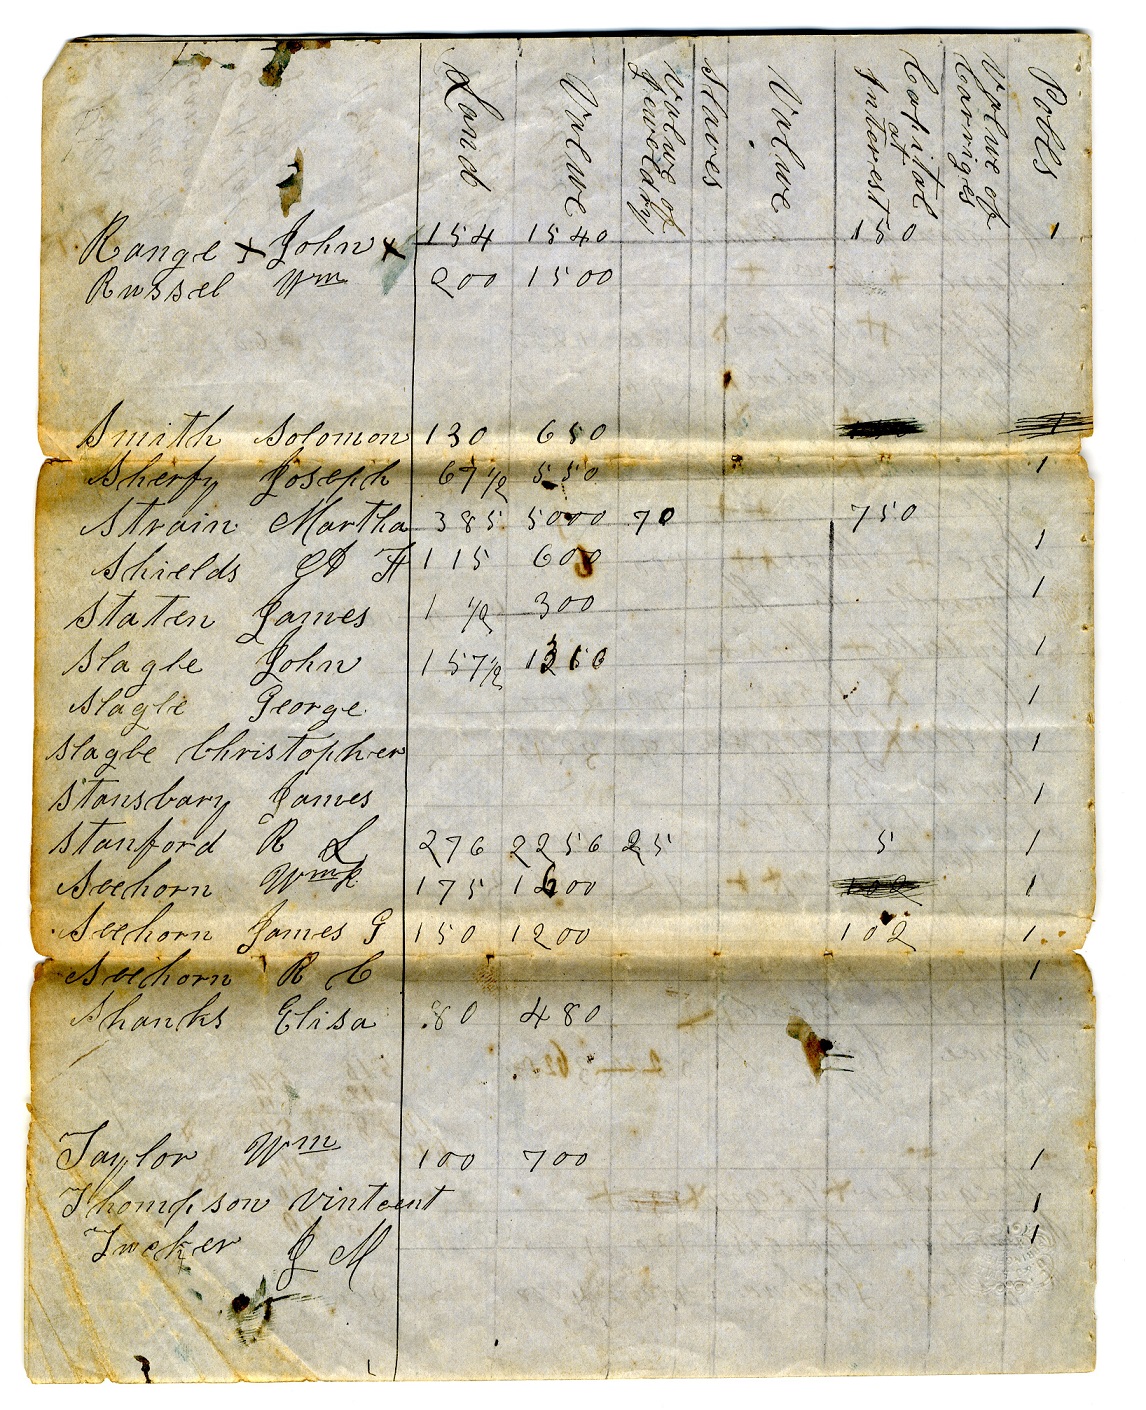 Land Value Value of Jeweldry Slaves Value Capital at Interest Value of Carriges Polls
Range x John x 154 1540 150 1
Russel Wm 200 1500
Smith Solomon 130 650 1
Sherfy Joseph 67 1/2 550 1
Strain Martha 385 5000 70 750
Shields H 115 600 1
Staten James 1 1/2 300 1
Slagle John 157 1/2 1 1
Slagle George 1
Slagle Christopher 1
Stansbary James 1
Stanford R L 276 2256 25 5 1
Seehorn Wm R 175 1600 102 1
Seehorn James G 150 1200 102 1
Seehorn R C 1
Shanks Elisa 80 480
Taylor Wm 100 700 1
Thompson Vinteent 1
Tucker J M 1